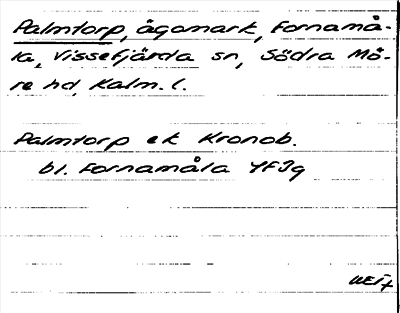 Palmtorp, ägomark, Fornamå-
la, Vissefjärda sn, Södra Mö-
re hd, Kalm. l.
Palmtorp ek Kronob.
bl. Fornamåla 4F3g